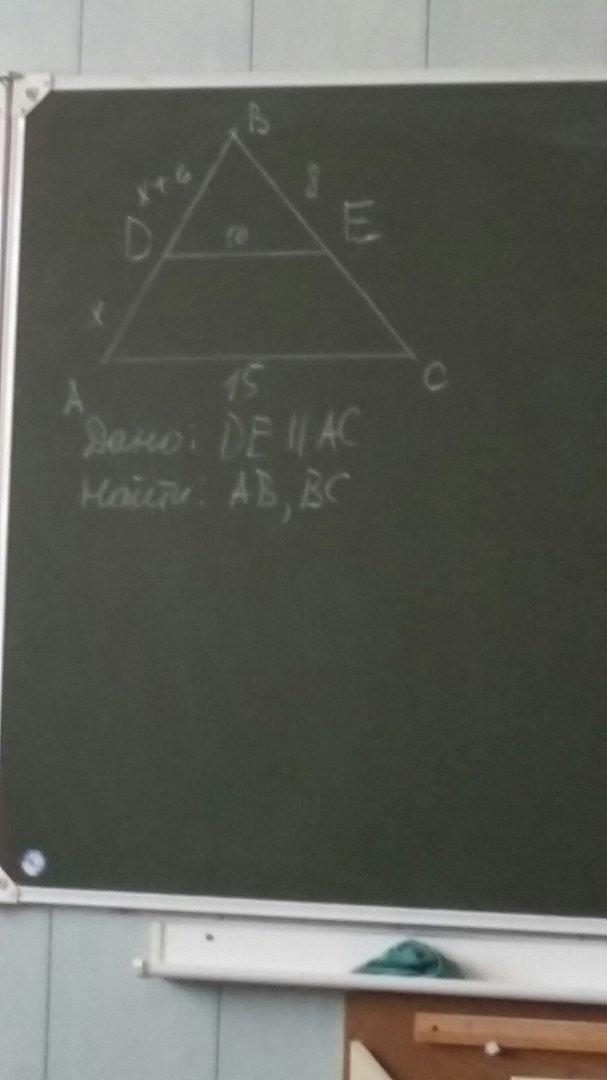 B
x+6
8
D
10
E
x
A
15
C
Дано: DE || AC
Найти: AB, BC